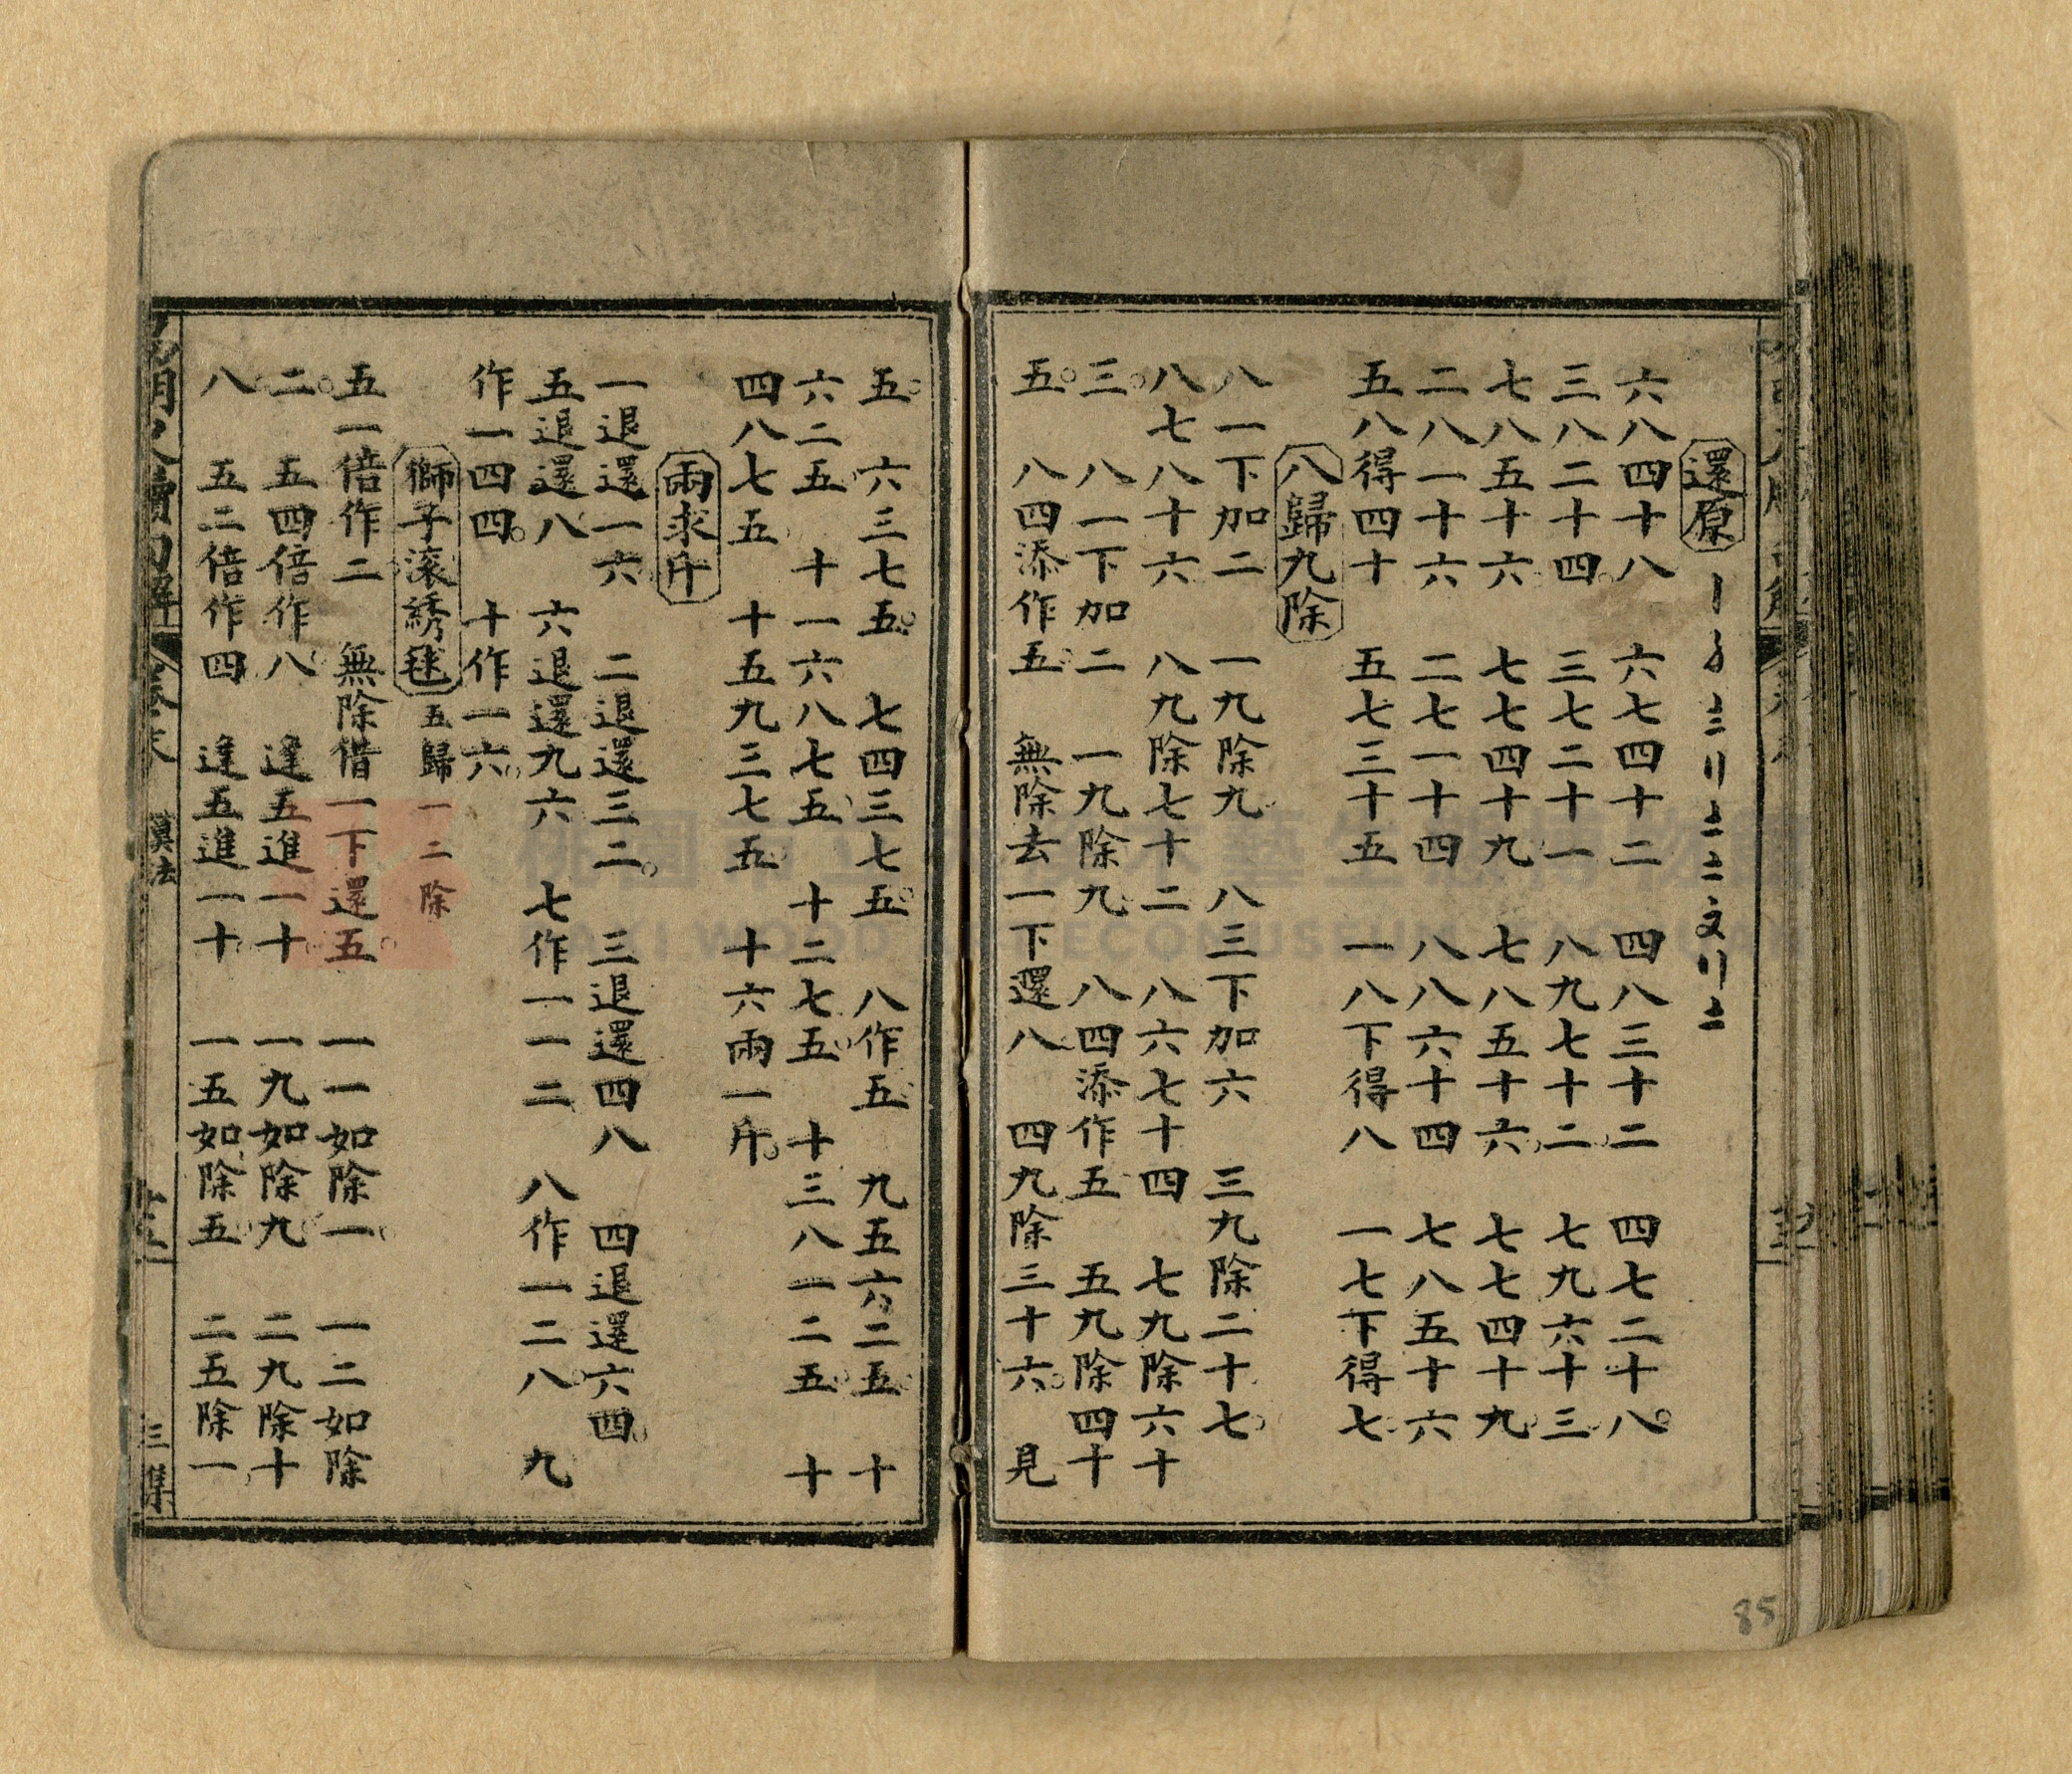 還原
六八四十八 六七四十二 四八三十二 四七二十八
三八二十四 三七二十一 八九七十二 七九六十三
七八五十六 七七四十九 七八五十六 七七四十九
二八一十六 二七一十四 八八六十四 七八五十六
五八得四十 五七三十五 一八下得八 一七下得七
八歸九除
八一下加二 一九除九 八三下加六 三九除二十七
八七八十六 八九除七十二 八六七十四 七九除六十
三 八一下加二 一九除九 八四添作五 五九除四十
五 八四添作五 無除去一下還八 四九除三十六 見
五 六三七五 七四三七五 八作五 九五六二五 十
六二五 十一六八七五 十二七五 十三八一二五 十
四八七五 十五九三七五 十六兩一斤
兩求斤
一退還一六 二退還三二 三退還四八 四退還六四
五退還八 六退還九六 七作一一二 八作一二八 九
作一四四 十作一六
獅子滚誘毬 五歸一二除
五一倍作二 無除借一下還五 一一如除一 一二如除
二 五四倍作八 逢五進一十 一九如除九 二九除十
八 五二倍作四 逢五進一十 一五如除五 二五除一
算法
三集
85